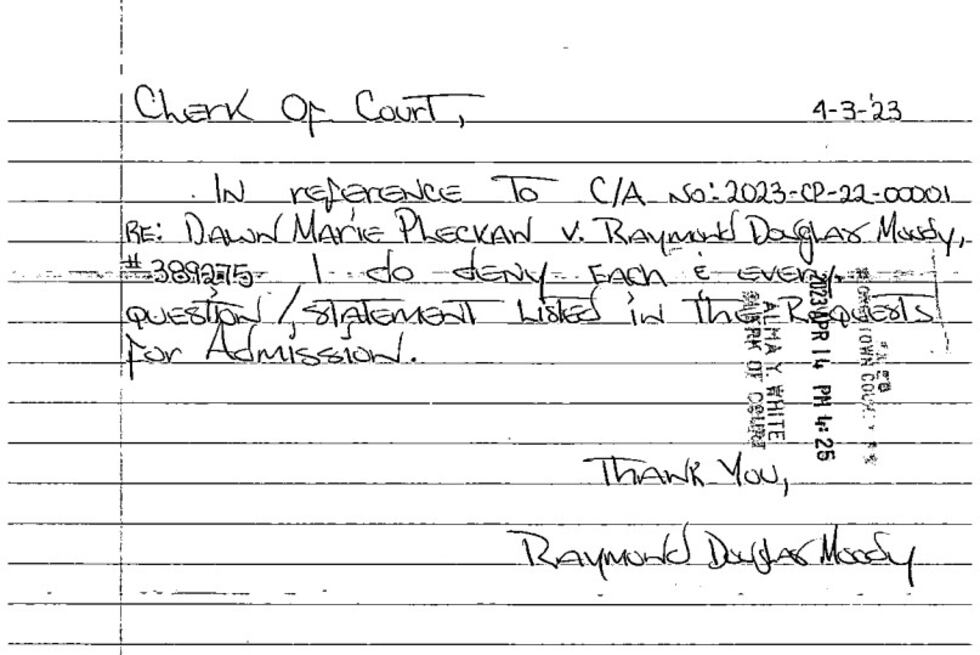 Clerk Of Court,
4-3-'23
In reference To C/A No: 2023-CP-22-00001
RE: Dawn Marie Pleckan v. Raymond Douglas Moody,
#389275 I do deny Each & every
question/statement listed in The Requests
for Admission.
FILED
GEORGETOWN COUNTY
2023 APR 14 PM 4:25
ALMA Y. WHITE
CLERK OF COURT
Thank You,
Raymond Douglas Moody